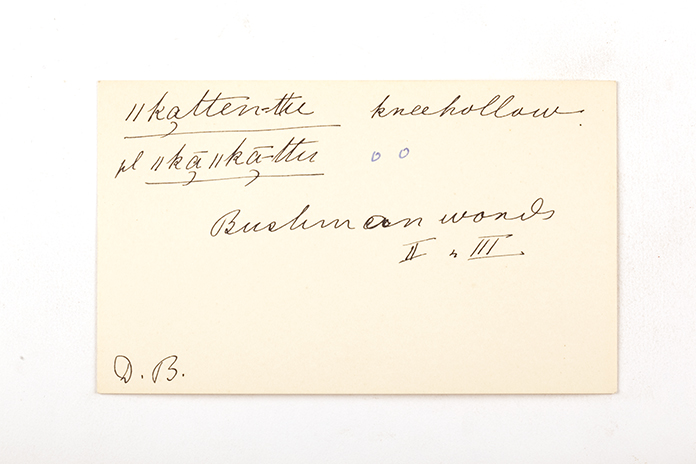 ǁka̡tten-ttu kneehollow.
pl ǁkā̡ ǁkā̡-ttu o o
Bushman words
II " III
D. B.